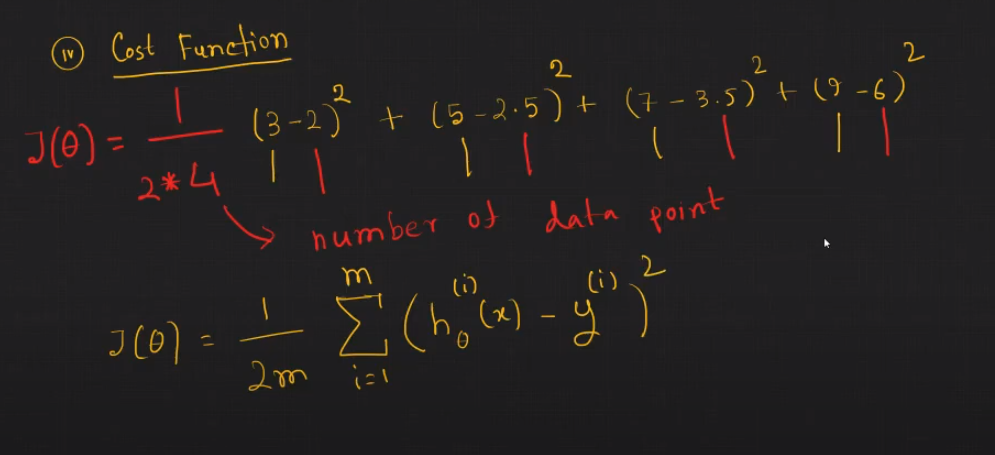 (iv) Cost Function
J(θ) = 1/(2*4) (3-2)² + (5-2.5)² + (7-3.5)² + (9-6)²
number of data point
J(θ) = 1/(2m) Σ_{i=1}^{m} (h_θ^{(i)}(x) - y^{(i)})²